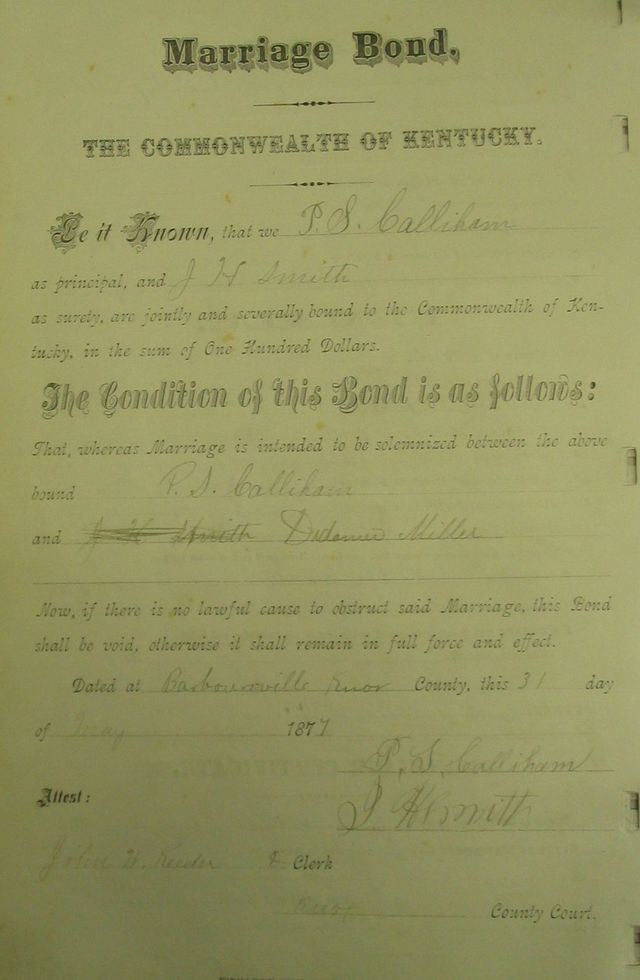 Marriage Bond.
THE COMMONWEALTH OF KENTUCKY.
Be it Known, that we P. S. Calliham
as principal, and J H Smith
as surety, are jointly and severally bound to the Commonwealth of Ken-
tucky, in the sum of One Hundred Dollars.
The Condition of this Bond is as follows:
That, whereas Marriage is intended to be solemnized between the above
bound P. S. Calliham
and J H Smith Miller
Now, if there is no lawful cause to obstruct said Marriage, this Bond
shall be void, otherwise it shall remain in full force and effect.
Dated at Barboursville Knox County, this 31 day
of May 1877
P. S. Calliham
J H Smith
Attest:
John W. Clerk
Knox County Court.